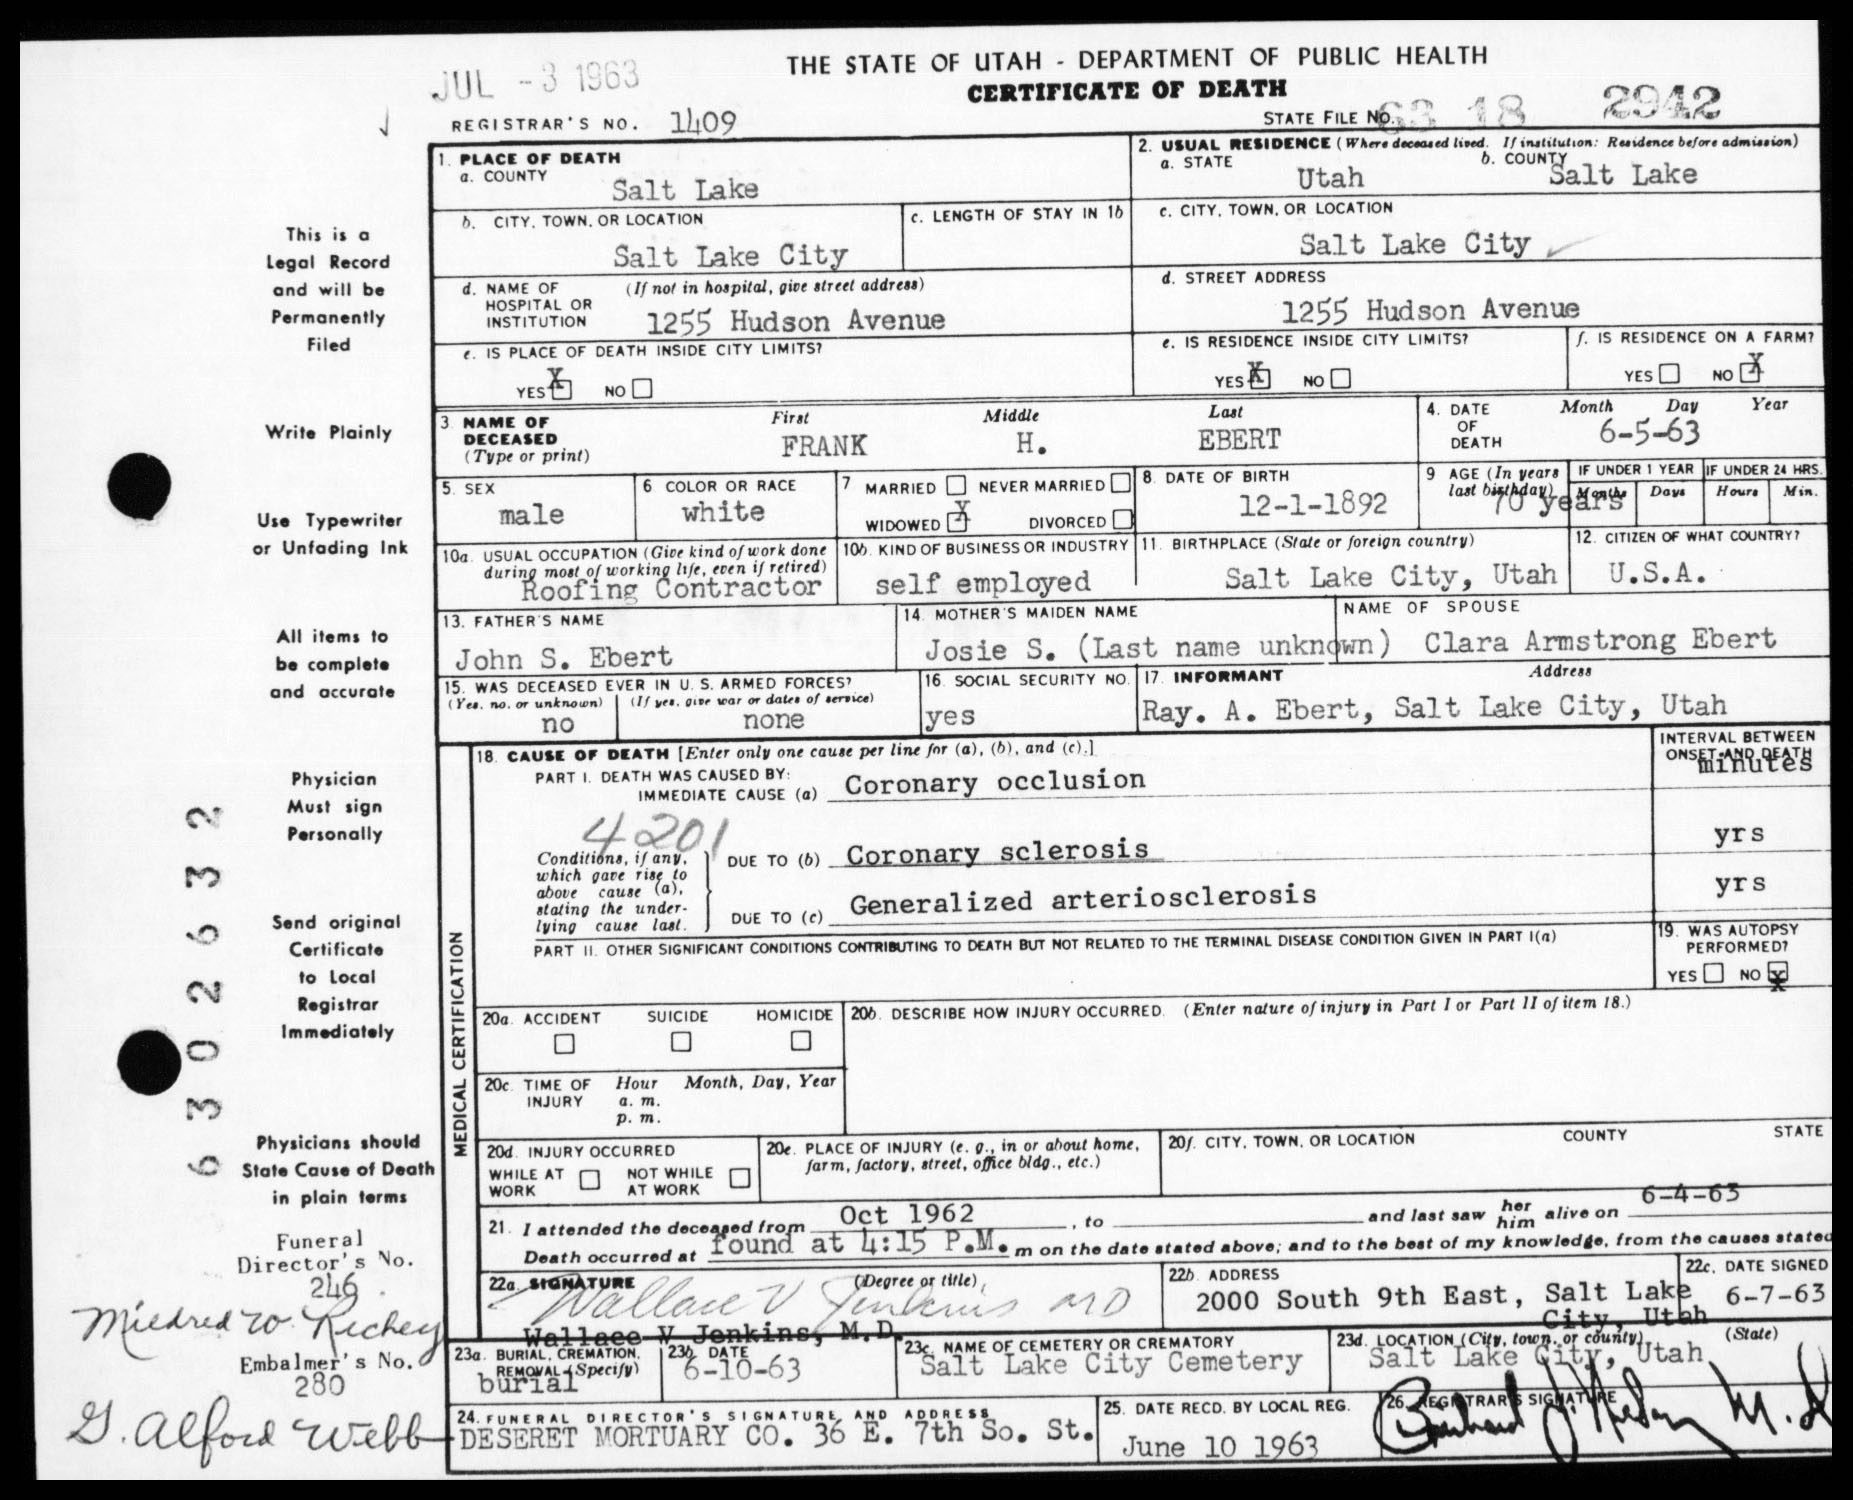 THE STATE OF UTAH - DEPARTMENT OF PUBLIC HEALTH
CERTIFICATE OF DEATH
JUL -3 1963
REGISTRAR'S NO. 1409
STATE FILE NO. 63 18 2942
This is a
Legal Record
and will be
Permanently
Filed
Write Plainly
Use Typewriter
or Unfading Ink
All items to
be complete
and accurate
Physician
Must sign
Personally
Send original
Certificate
to Local
Registrar
Immediately
Physicians should
State Cause of Death
in plain terms
6 3 0 2 6 3 2
Funeral
Director's No.
246
Mildred W. Richey
Embalmer's No.
280
G. Alford Webb
1. PLACE OF DEATH
a. COUNTY
Salt Lake
2. USUAL RESIDENCE (Where deceased lived. If institution: Residence before admission)
a. STATE Utah
b. COUNTY Salt Lake
b. CITY, TOWN, OR LOCATION
Salt Lake City
c. LENGTH OF STAY IN 1b
c. CITY, TOWN, OR LOCATION
Salt Lake City
d. NAME OF HOSPITAL OR INSTITUTION (If not in hospital, give street address)
1255 Hudson Avenue
d. STREET ADDRESS
1255 Hudson Avenue
e. IS PLACE OF DEATH INSIDE CITY LIMITS?
YES X NO
e. IS RESIDENCE INSIDE CITY LIMITS?
YES X NO
f. IS RESIDENCE ON A FARM?
YES NO X
3. NAME OF DECEASED (Type or print)
First Middle Last
FRANK H. EBERT
4. DATE OF DEATH
Month Day Year
6-5-63
5. SEX
male
6. COLOR OR RACE
white
7. MARRIED NEVER MARRIED
WIDOWED X DIVORCED
8. DATE OF BIRTH
12-1-1892
9 AGE (In years last birthday)
70 years
IF UNDER 1 YEAR
Months Days
IF UNDER 24 HRS.
Hours Min.
10a. USUAL OCCUPATION (Give kind of work done during most of working life, even if retired)
Roofing Contractor
10b. KIND OF BUSINESS OR INDUSTRY
self employed
11. BIRTHPLACE (State or foreign country)
Salt Lake City, Utah
12. CITIZEN OF WHAT COUNTRY?
U.S.A.
13. FATHER'S NAME
John S. Ebert
14. MOTHER'S MAIDEN NAME
Josie S. (Last name unknown)
NAME OF SPOUSE
Clara Armstrong Ebert
15. WAS DECEASED EVER IN U. S. ARMED FORCES?
(Yes, no, or unknown) (If yes, give war or dates of service)
no none
16. SOCIAL SECURITY NO.
yes
17. INFORMANT Address
Ray. A. Ebert, Salt Lake City, Utah
MEDICAL CERTIFICATION
18. CAUSE OF DEATH [Enter only one cause per line for (a), (b), and (c).]
INTERVAL BETWEEN ONSET AND DEATH
PART I. DEATH WAS CAUSED BY:
IMMEDIATE CAUSE (a) Coronary occlusion minutes
4201
Conditions, if any, which gave rise to above cause (a), stating the underlying cause last.
DUE TO (b) Coronary sclerosis yrs
DUE TO (c) Generalized arteriosclerosis yrs
PART II. OTHER SIGNIFICANT CONDITIONS CONTRIBUTING TO DEATH BUT NOT RELATED TO THE TERMINAL DISEASE CONDITION GIVEN IN PART I(a)
19. WAS AUTOPSY PERFORMED?
YES NO X
20a. ACCIDENT SUICIDE HOMICIDE
20b. DESCRIBE HOW INJURY OCCURRED. (Enter nature of injury in Part I or Part II of item 18.)
20c. TIME OF INJURY Hour Month, Day, Year
a. m.
p. m.
20d. INJURY OCCURRED
WHILE AT WORK NOT WHILE AT WORK
20e. PLACE OF INJURY (e. g., in or about home, farm, factory, street, office bldg., etc.)
20f. CITY, TOWN, OR LOCATION COUNTY STATE
21. I attended the deceased from Oct 1962, to and last saw her him alive on 6-4-63
Death occurred at found at 4:15 P.M. m on the date stated above; and to the best of my knowledge, from the causes stated
22a. SIGNATURE (Degree or title)
Wallace V Jenkins MD
Wallace V Jenkins, M.D.
22b. ADDRESS
2000 South 9th East, Salt Lake
City, Utah
22c. DATE SIGNED
6-7-63
23a. BURIAL, CREMATION, REMOVAL (Specify)
burial
23b. DATE
6-10-63
23c. NAME OF CEMETERY OR CREMATORY
Salt Lake City Cemetery
23d. LOCATION (City, town, or county) (State)
Salt Lake City, Utah
24. FUNERAL DIRECTOR'S SIGNATURE AND ADDRESS
DESERET MORTUARY CO. 36 E. 7th So. St.
25. DATE RECD. BY LOCAL REG.
June 10 1963
26. REGISTRAR'S SIGNATURE